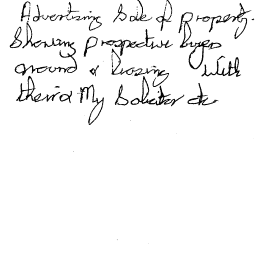 Advertising Sale of property.
Showing prospective buyers
around & liaising with
their & My Solicitor etc